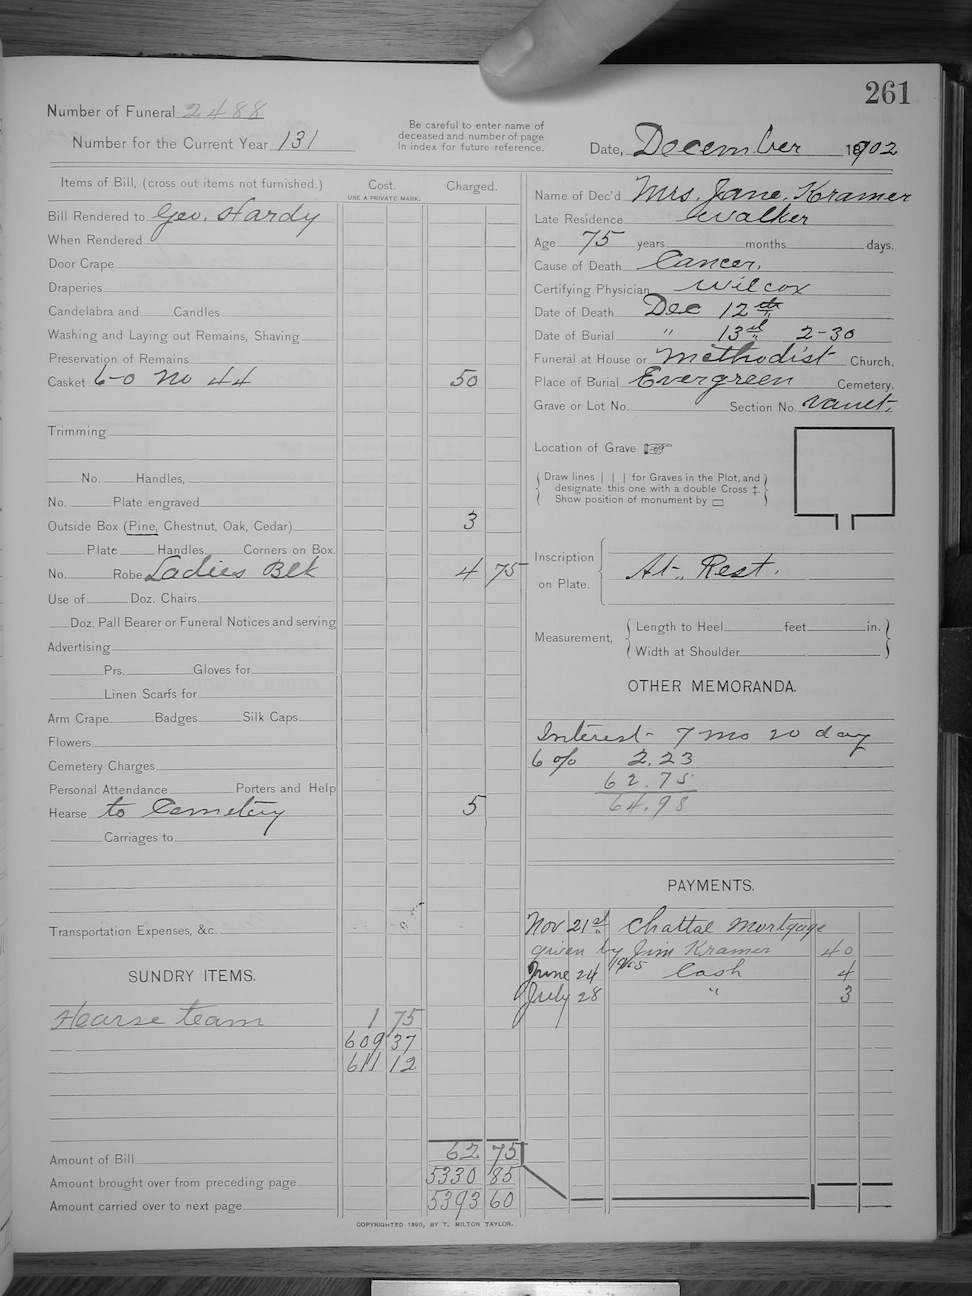 261
Number of Funeral 2488
Number for the Current Year 131
Be careful to enter name of
deceased and number of page
in index for future reference.
Date, December 1902
Items of Bill, (cross out items not furnished.)
Cost.
USE A PRIVATE MARK.
Charged.
Bill Rendered to Geo. Hardy
When Rendered
Door Crape
Draperies
Candelabra and Candles
Washing and Laying out Remains, Shaving
Preservation of Remains
Casket 6-0 No 44 50
Trimming
No. Handles,
No. Plate engraved
Outside Box (Pine, Chestnut, Oak, Cedar) 3
Plate Handles Corners on Box.
No. Robe Ladies Blk 4 75
Use of Doz. Chairs
Doz. Pall Bearer or Funeral Notices and serving
Advertising
Prs. Gloves for
Linen Scarfs for
Arm Crape Badges Silk Caps
Flowers
Cemetery Charges
Personal Attendance Porters and Help
Hearse to Cemetery 5
Carriages to
Transportation Expenses, &c.
SUNDRY ITEMS.
Hearse team 1 75
609 37
611 12
Amount of Bill 62 75
Amount brought over from preceding page 5330 85
Amount carried over to next page 5393 60
COPYRIGHTED 1890, BY T. MILTON TAYLOR.
Name of Dec'd Mrs. Jane. Kramer
Late Residence Walker
Age 75 years months days.
Cause of Death Cancer.
Certifying Physician Wilcox
Date of Death Dec 12th
Date of Burial " 13d 2-30
Funeral at House or Methodist Church.
Place of Burial Evergreen Cemetery.
Grave or Lot No. Section No. vault.
Location of Grave
(Draw lines | | | for Graves in the Plot, and
designate this one with a double Cross ‡.
Show position of monument by ▭)
Inscription
on Plate.
At. Rest.
Measurement,
Length to Heel feet in.
Width at Shoulder
OTHER MEMORANDA.
Interest- 7 mo 20 day
6 % 2.23
62.75
64.98
PAYMENTS.
Nov 21st Chattal Mortgage
given by Jim Kramer 40
June 24 1905 Cash 4
July 28 " 3